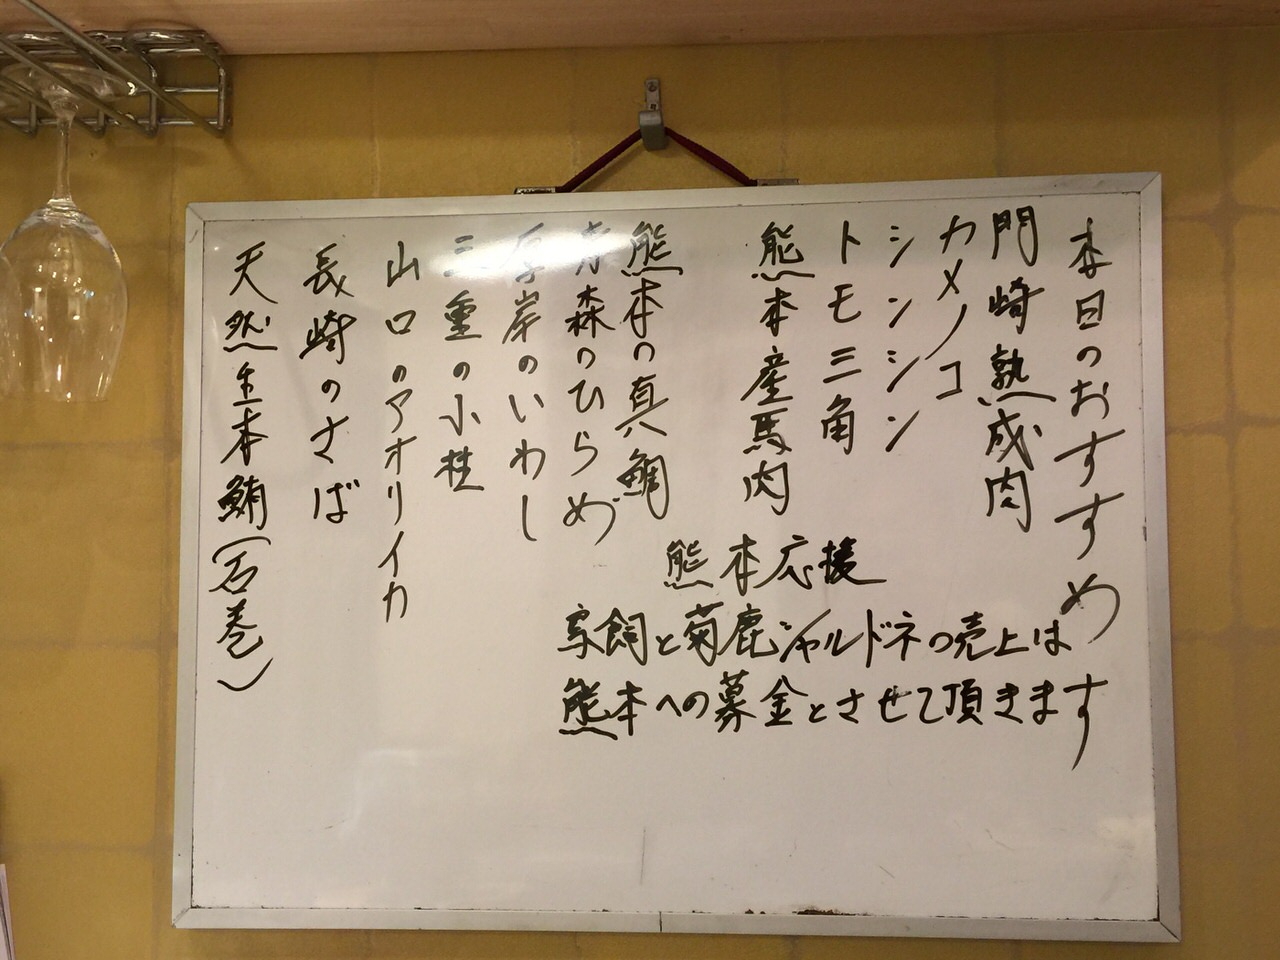 本日のおすすめ
門崎熟成肉
カメノコ
シンシン
トモ三角
熊本産馬肉
熊本の真鯛
青森のひらめ
厚岸のいわし
三重の小柱
山口のアオリイカ
長崎のさば
天然生本鮪(石巻)
熊本応援
と菊鹿シャルドネの売上は
熊本への募金とさせて頂きます